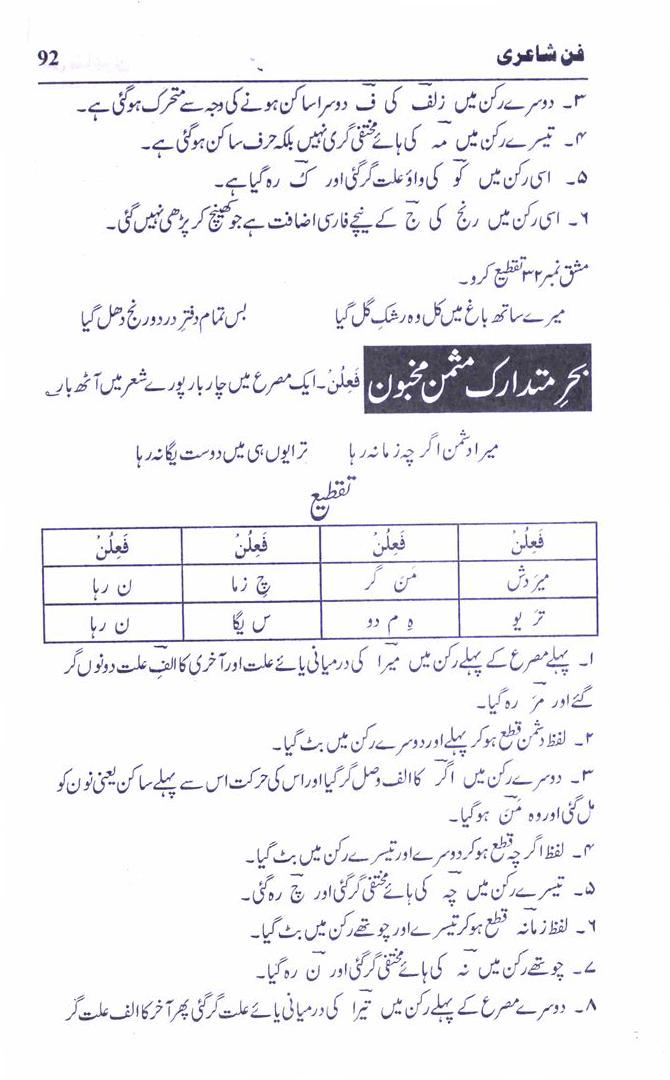 فن شاعری 92
۳۔ دوسرے رکن میں زلف کی ف دوسرا ساکن ہونے کی وجہ سے متحرک ہو گئی ہے۔
۴۔ تیسرے رکن میں مہ کی ہائے مختفی گری نہیں بلکہ حرف ساکن ہو گئی ہے۔
۵۔ اسی رکن میں کو کی واؤ علت گر گئی اور ک رہ گیا ہے۔
۶۔ اسی رکن میں رنج کی ج کے نیچے فارسی اضافت ہے جو کھینچ کر پڑھی نہیں گئی۔
مشق نمبر ۳۲ تقطیع کرو۔
میرے ساتھ باغ میں کل وہ رشکِ گل گیا بس تمام دفترِ درد و رنج دھل گیا
بحرِ متدارک مثمن مخبون فَعِلُنْ۔ ایک مصرع میں چار بار پورے شعر میں آٹھ بار
میرا دشمن اگر چہ زمانہ رہا ترا یوں ہی میں دوست یگانہ رہا
تقطیع
فَعِلُنْ فَعِلُنْ فَعِلُنْ فَعِلُنْ
میرَ دش مَنَ گر چِ زما نَ رہا
ترَ یو ہِ م دو س یگا نَ رہا
۱۔ پہلے مصرع کے پہلے رکن میں میرا کی درمیانی یائے علت اور آخری کا الفِ علت دونوں گر
گئے اور مرَ رہ گیا۔
۲۔ لفظ دشمن قطع ہو کر پہلے اور دوسرے رکن میں بٹ گیا۔
۳۔ دوسرے رکن میں اگر کا الف وصل گر گیا اور اس کی حرکت اس سے پہلے ساکن یعنی نون کو
مل گئی اور وہ مَنَ ہو گیا۔
۴۔ لفظ اگر چہ قطع ہو کر دوسرے اور تیسرے رکن میں بٹ گیا۔
۵۔ تیسرے رکن میں چہ کی ہائے مختفی گر گئی اور چ رہ گئی۔
۶۔ لفظ زمانہ قطع ہو کر تیسرے اور چوتھے رکن میں بٹ گیا۔
۷۔ چوتھے رکن میں نہ کی ہائے مختفی گر گئی اور ن رہ گیا۔
۸۔ دوسرے مصرع کے پہلے رکن میں تیرا کی درمیانی یائے علت گر گئی پھر آخر کا الف علت گر